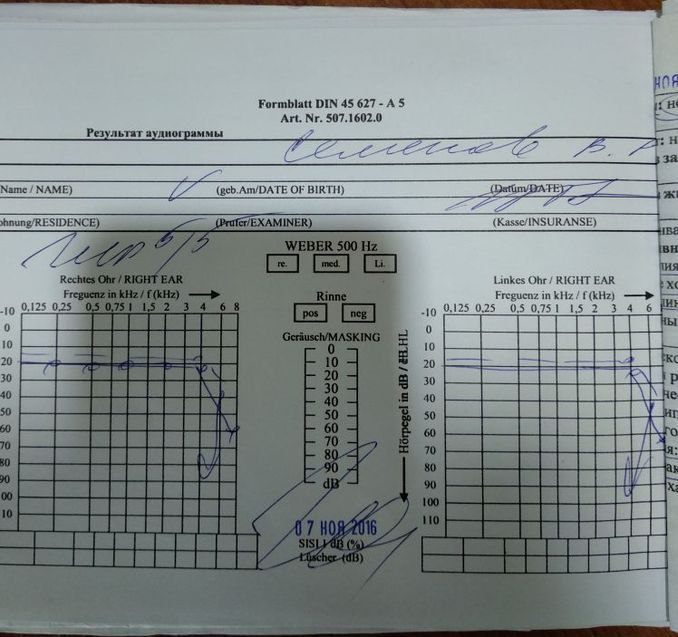 Formblatt DIN 45 627 - A 5
Art. Nr. 507.1602.0
Результат аудиограммы
Семенов В.
Name / NAME) (geb.Am/DATE OF BIRTH) (Datum/DATE)
ohnung/RESIDENCE) (Prufer/EXAMINER) (Kasse/INSURANSE)
5/5
WEBER 500 Hz
re. med. Li.
Rechtes Ohr / RIGHT EAR
Freguenz in kHz / f (kHz)
0,125 0,25 0,5 0,75 1 1,5 2 3 4 6 8
-10
0
10
20
30
40
50
60
70
80
90
00
10
Rinne
pos neg
Geräusch/MASKING
0
10
20
30
40
50
60
70
80
90
dB
Hörpegel in dB / dB.HL
07 НОЯ 2016
SISI I dB (%)
Lüscher (dB)
Linkes Ohr / RIGHT EAR
Freguenz in kHz / f (kHz)
0,125 0,25 0,5 0,75 1 1,5 2 3 4 6
-10
0
10
20
30
40
50
60
70
80
90
100
110